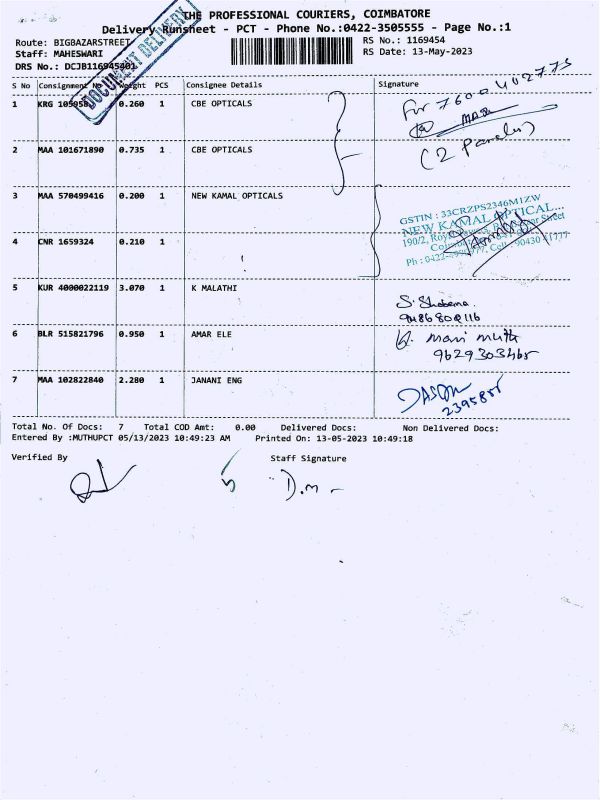 THE PROFESSIONAL COURIERS, COIMBATORE
Delivery Runsheet - PCT - Phone No.:0422-3505555 - Page No.:1
Route: BIGBAZARSTREET
RS No.: 1169454
Staff: MAHESWARI
RS Date: 13-May-2023
DRS No.: DCJB116945401
DOCUMENT DELIVERY
S No Consignment No Weight PCS Consignee Details Signature
1 KRG 0.260 1 CBE OPTICALS
For 7600402773
(2 Parcels)
2 MAA 101671890 0.735 1 CBE OPTICALS
3 MAA 570499416 0.200 1 NEW KAMAL OPTICALS
GSTIN : 33CRZPS2346M1ZW
NEW KAMAL OPTICAL...
190/2, Street
Ph : 0422- Cell : 90430 11777
4 CNR 1659324 0.210 1
5 KUR 4000022119 3.070 1 K MALATHI
S. Shobana.
6 BLR 515821796 0.950 1 AMAR ELE
mari muth
9629303465
7 MAA 102822840 2.280 1 JANANI ENG
JASON
2395855
Total No. Of Docs: 7 Total COD Amt: 0.00 Delivered Docs: Non Delivered Docs:
Entered By :MUTHUPCT 05/13/2023 10:49:23 AM Printed On: 13-05-2023 10:49:18
Verified By Staff Signature
D.m